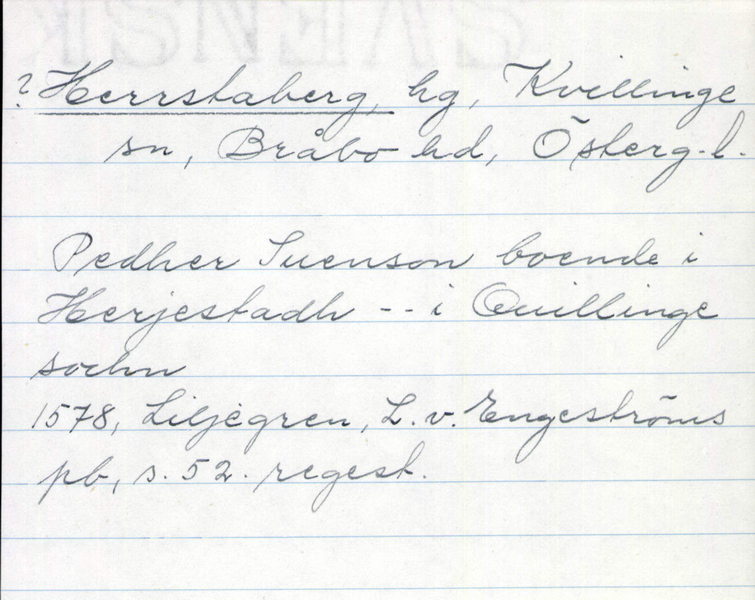 ? Herrstaberg, hg, Kvillinge
sn, Bråbo hd, Österg. l.
Pedher Suenson boende i
Herjestadh -- i Quillinge
sochn
1578, Liljegren, L. v. Engeströms
pb, s. 52. regest.